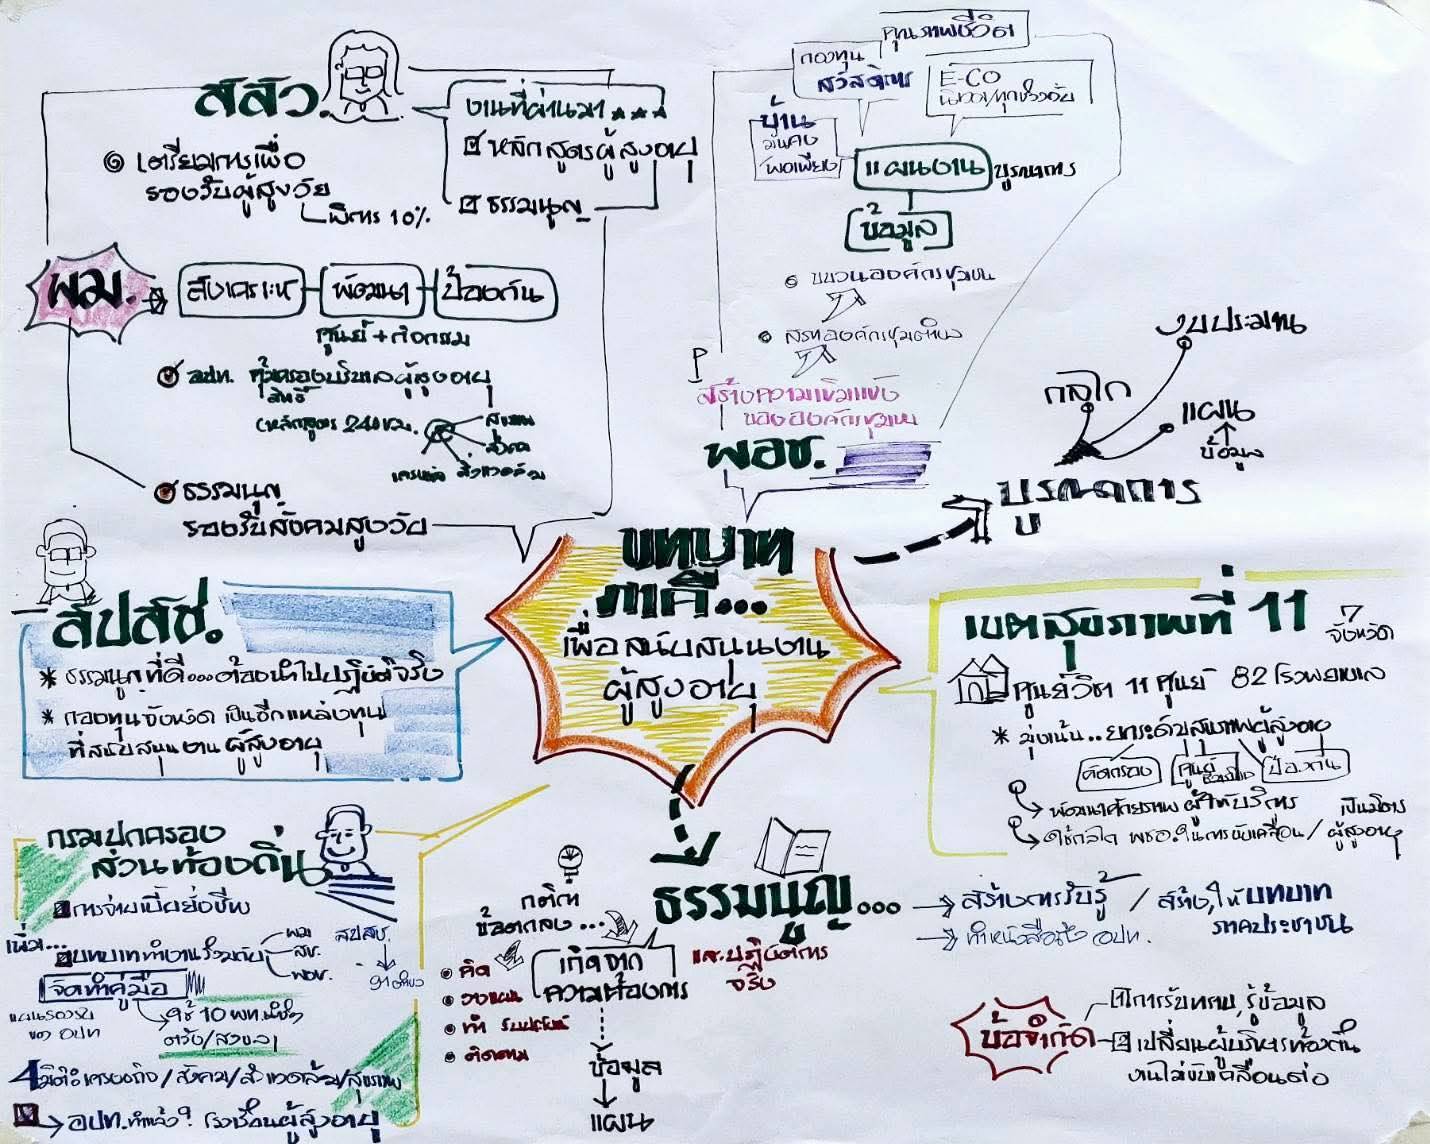 สสว.
เตรียมการเพื่อ
รองรับผู้สูงวัย
พิการ 10%
งานที่ผ่านมา
หลักสูตรผู้สูงอายุ
ธรรมนูญ
พม.
สังเคราะห์
พัฒนา
ป้องกัน
ศูนย์ + กิจกรรม
อปท. คุ้มครองบริบาลผู้สูงอายุ
สิทธิ์
(หลักสูตร 240 ชม.
สุขภาพ
สังคม
เศรษฐกิจ สิ่งแวดล้อม
ธรรมนูญ
รองรับสังคมสูงวัย
คุณภาพชีวิต
กองทุน
สวัสดิการ
E-CO
บ้าน
มั่นคง
พอเพียง
แผนงาน บูรณาการ
ข้อมูล
ขบวนองค์กรชุมชน
สร้างความเข้มแข็ง
ขององค์กรชุมชน
พอช.
งบประมาณ
กลไก
แผน
ข้อมูล
บูรณาการ
บทบาท
ภาคี...
เพื่อสนับสนุนงาน
ผู้สูงอายุ
สปสช.
* ธรรมนูญที่ดี...ต้องนำไปปฏิบัติจริง
* กองทุนจังหวัด เป็นอีกแหล่งทุน
ที่สนับสนุนงานผู้สูงอายุ
เขตสุขภาพที่ 11
7
จังหวัด
ศูนย์วิชา 11 ศูนย์ 82 โรงพยาบาล
* มุ่งเน้น.. ยกระดับสุขภาพผู้สูงอายุ
คัดกรอง
ศูนย์
ป้องกัน
พัฒนาศักยภาพ ผู้ให้บริการ
เป็นมิตร
ใช้กลไก พชอ. ในการขับเคลื่อน / ผู้สูงอายุ
กรมปกครอง
ส่วนท้องถิ่น
การจ่ายเบี้ยยังชีพ
เพิ่ม...
บทบาททำงานร่วมกับ
พม
สช.
พอช.
สปสช.
จัดทำคู่มือ
ใช้ 10 พท.
ตรัง/สงขลา
4 มิติ: เศรษฐกิจ / สังคม / สิ่งแวดล้อม / สุขภาพ
อปท. ทำแล้ว? โรงเรียนผู้สูงอายุ
กติกา
ข้อตกลง...
ธรรมนูญ...
และปฏิบัติการ
จริง
เกิดจาก
ความต้องการ
คิด
วางแผน
ทำ
ติดตาม
ข้อมูล
แผน
สร้างการรับรู้ / สร้าง, ให้บทบาท
ภาคประชาชน
ทำหนังสือถึง อปท.
ข้อจำกัด
1 การรับทราบ, รู้ข้อมูล
2 เปลี่ยนผู้บริหารท้องถิ่น
งานไม่ขับเคลื่อนต่อ